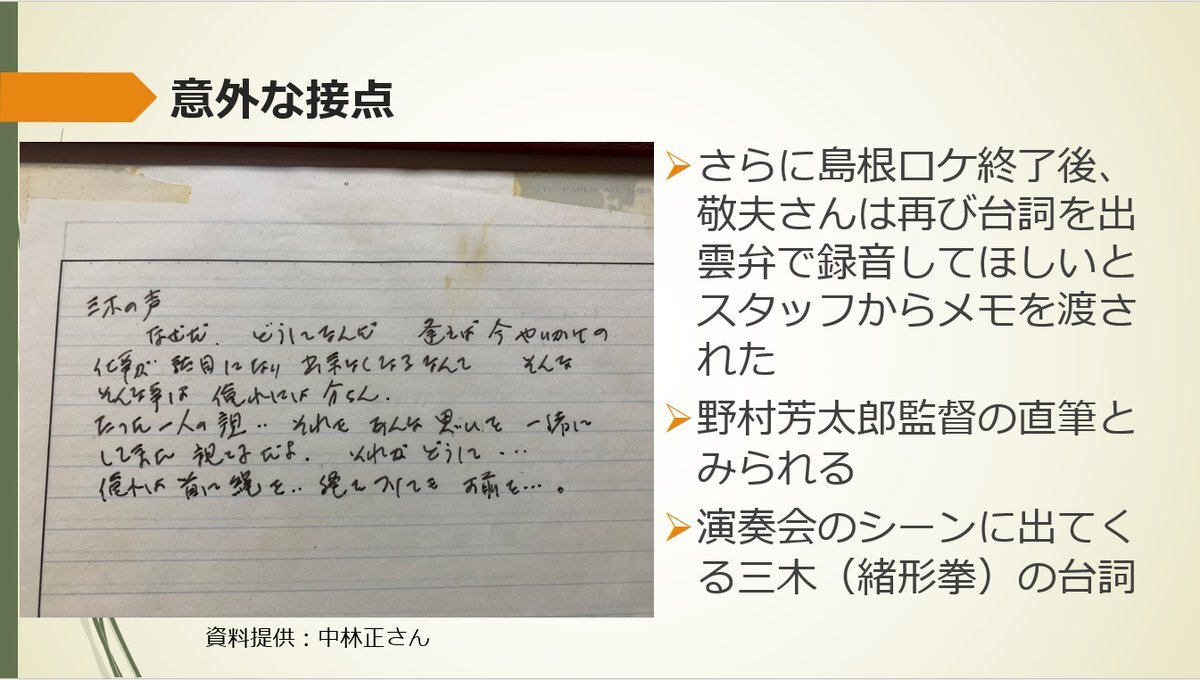 意外な接点
三木の声
なぜだ、どうしてなんだ 逢えば 今 やりかけの
仕事が 駄目になり 出来なくなるなんて そんな
そんな事は 俺れには 分らん.
たった一人の親‥ それも あんな思いを 一緒に
してきた 親と子だよ. それが どうして・・・
俺れは 首に縄を‥ 縄を つけても お前を…。
資料提供：中林正さん
さらに島根ロケ終了後、
敬夫さんは再び台詞を出
雲弁で録音してほしいと
スタッフからメモを渡さ
れた
野村芳太郎監督の直筆と
みられる
演奏会のシーンに出てく
る三木（緒形拳）の台詞